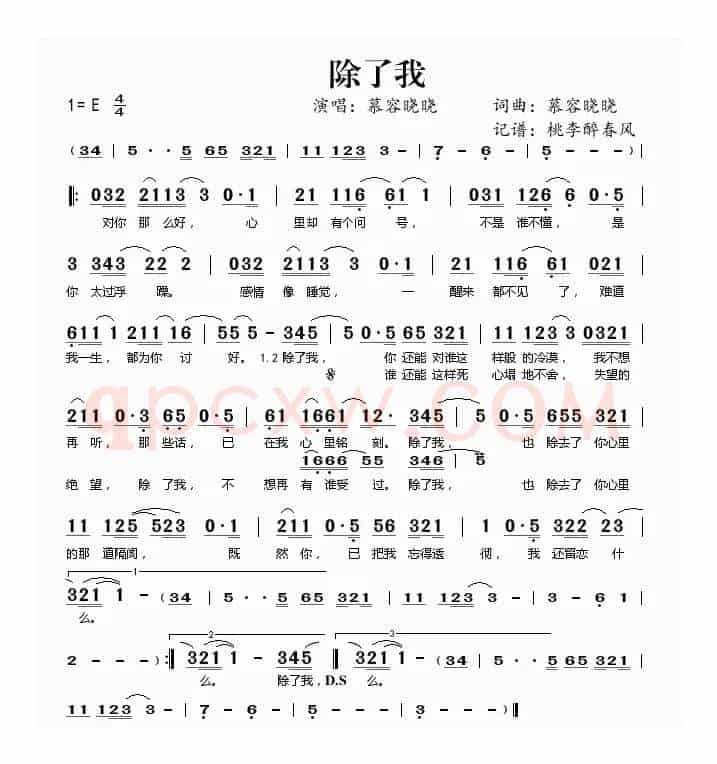 除了我
1= E 4/4 演唱：慕容晓晓 词曲：慕容晓晓
记谱：桃李醉春风
（34 | 5 · · 5 65 321 | 11 123 3 − | 7 − 6 − | 5 − − − ）|
‖: 032 2113 3 0·1 | 21 116 61 1 | 031 126 6 0·5 |
对你 那 么好， 心 里却 有个问 号， 不是 谁不懂， 是
3 343 22 2 | 032 2113 3 0·1 | 21 116 61 021 |
你 太过浮 躁。 感情 像 睡觉， 一 醒来 都不见 了，难道
611 1 211 16 | 55 5 − 345 | 5 0·5 65 321 | 11 123 3 0321 |
我一生， 都为你 讨 好。 1.2 除了我， 你 还能 对谁这 样般 的冷漠， 我不想
谁 还能 这样死 心塌 地不舍， 失望的
qpcxw.com
211 0·3 65 0·5 | 61 1661 12· 345 | 5 0·5 655 321 |
再听， 那 些话， 已 在我 心 里铭 刻。 除了我， 也 除去了 你心里
1666 55 346 | 5
绝望， 除 了我， 不 想再 有 谁受 过。除了我， 也 除去了 你心里
11 125 523 0·1 | 211 0·5 56 322 | 1 0·5 322 23 |
的那 道隔阂， 既 然你， 已 把我 忘得透 彻， 我 还留恋 什
1
321 1 − （34 | 5 · · 5 65 321 | 11 123 3 − | 7 − 6 − |
么。
2 3
2 − − − ）:‖ 321 1 − 345 ‖ 321 1 − （34 | 5 · · 5 65 321 |
么。 除了我，D.S 么。
11 123 3 − | 7 − 6 − | 5 − − − | 5 − − − ）‖